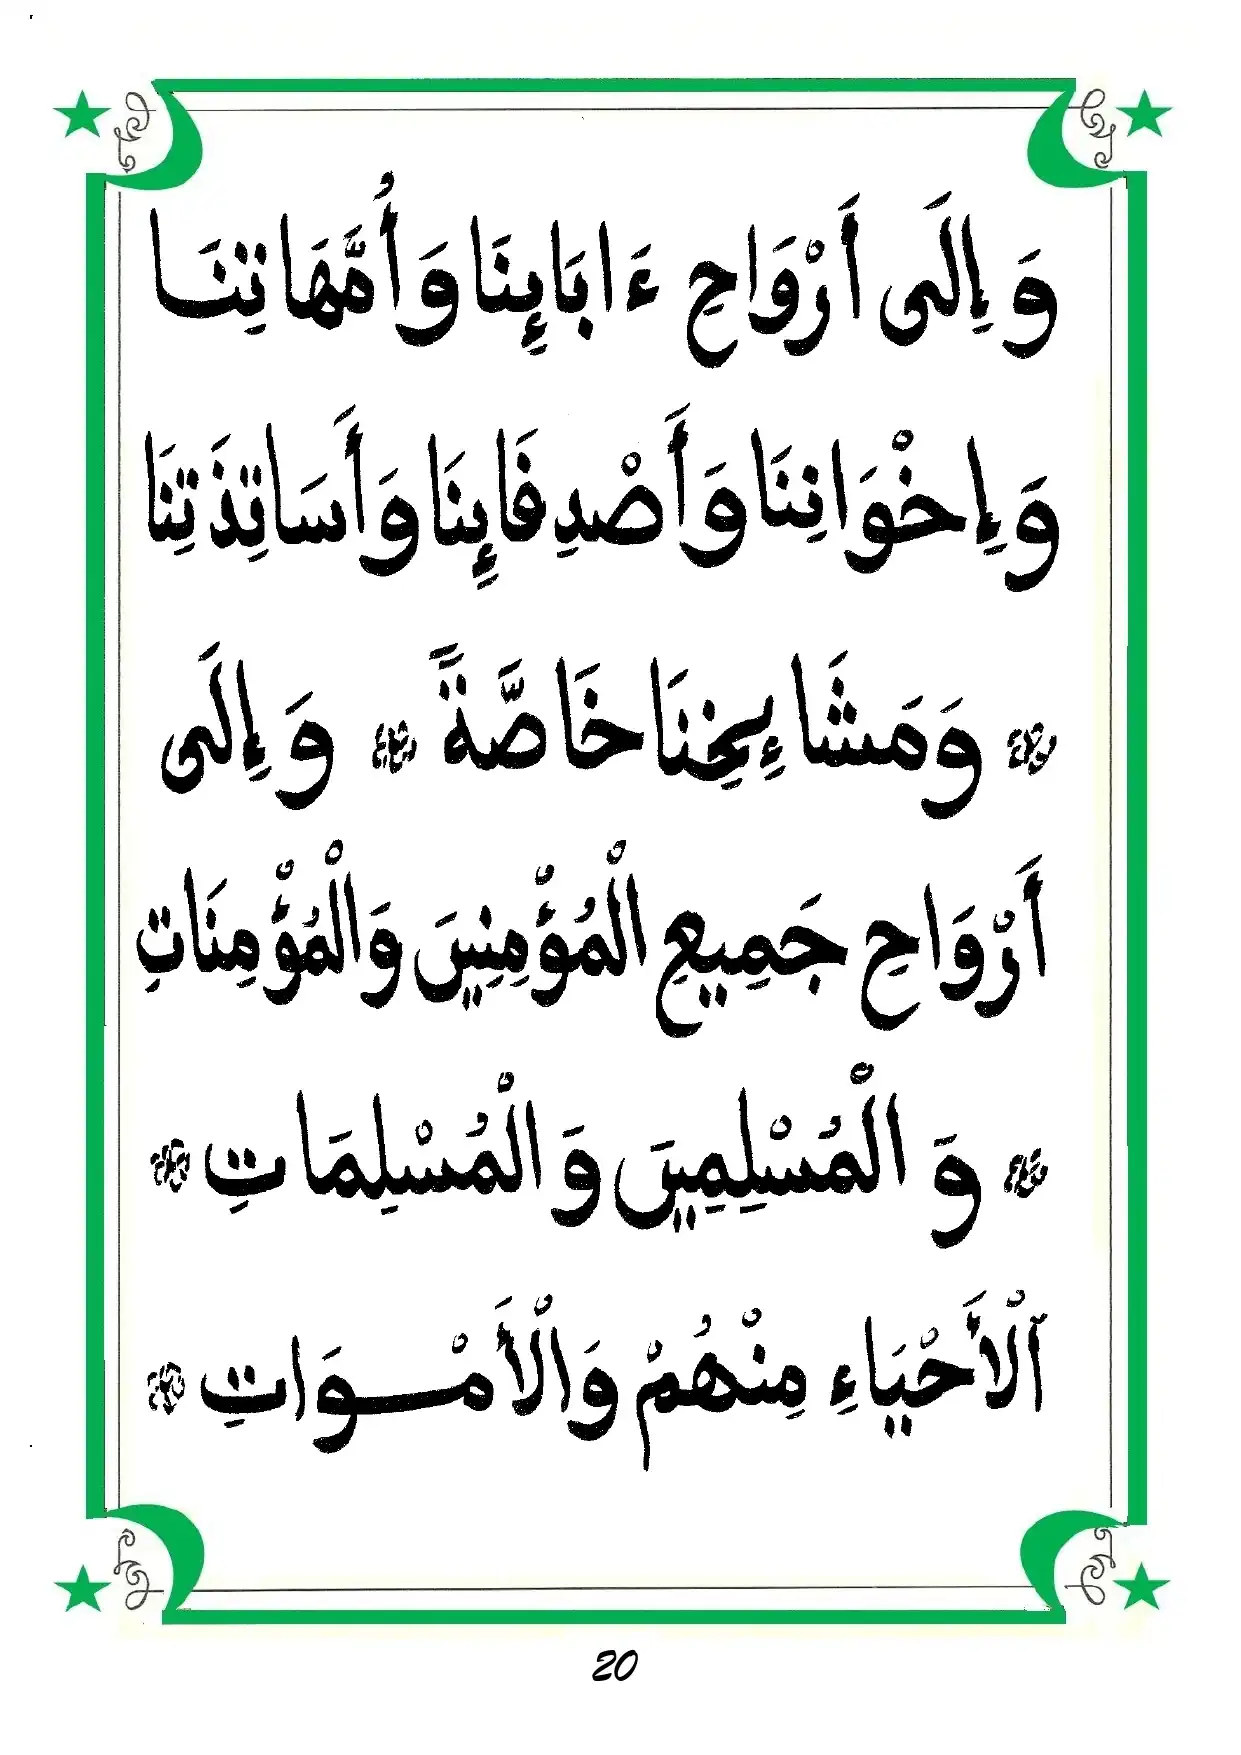 وَإِلَى أَرْوَاحِ ءَابَائِنَا وَأُمَّهَاتِنَا
وَإِخْوَانِنَا وَأَصْدِقَائِنَا وَأَسَاتِذَتِنَا
وَمَشَائِخِنَا خَاصَّةً وَإِلَى
أَرْوَاحِ جَمِيعِ الْمُؤْمِنِينَ وَالْمُؤْمِنَاتِ
وَ الْمُسْلِمِينَ وَالْمُسْلِمَاتِ
اَلْأَحْيَاءِ مِنْهُمْ وَالْأَمْـــوَاتِ
20